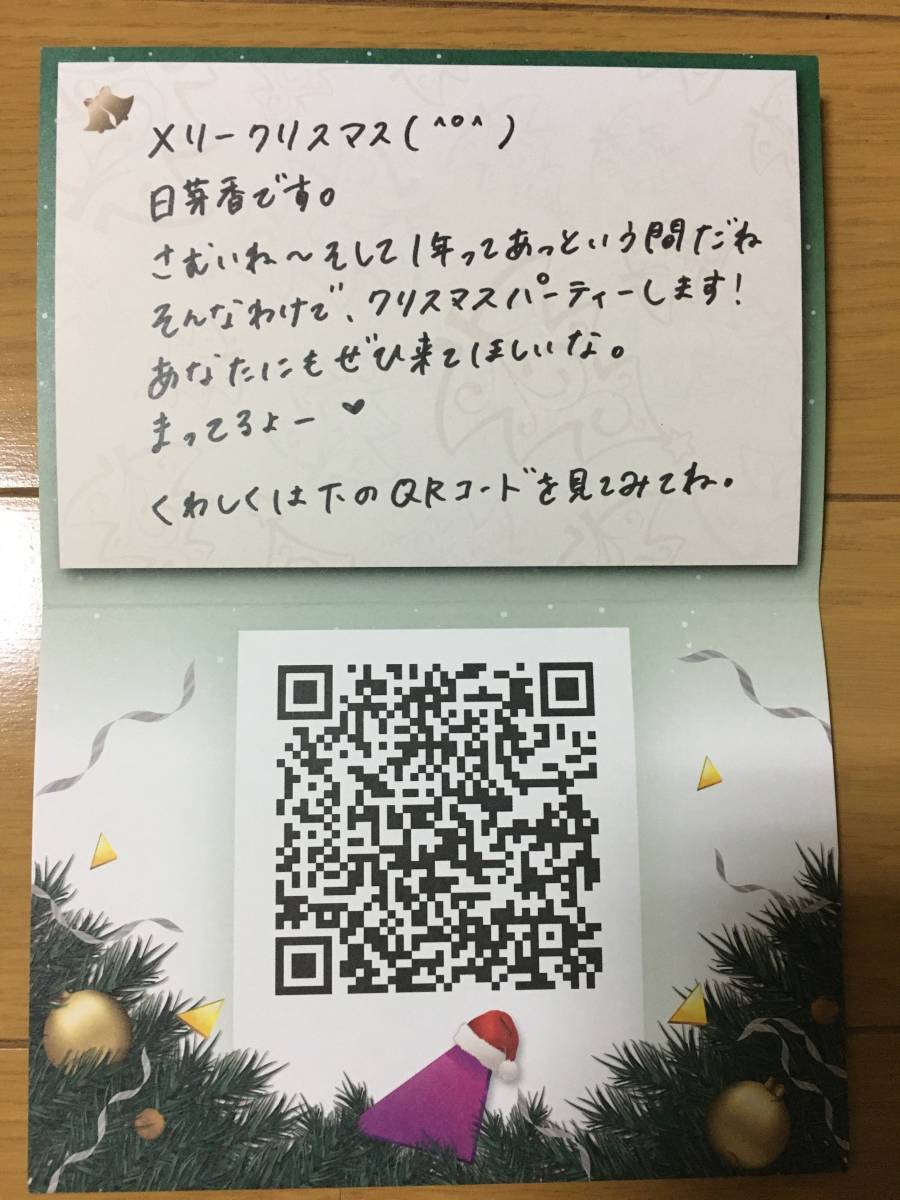 メリークリスマス(^o^)
日芽香です。
さむいね〜そして1年ってあっという間だね
そんなわけで、クリスマスパーティーします!
あなたにもぜひ来てほしいな。
まってるよー♥
くわしくは下のQRコードを見てみてね。